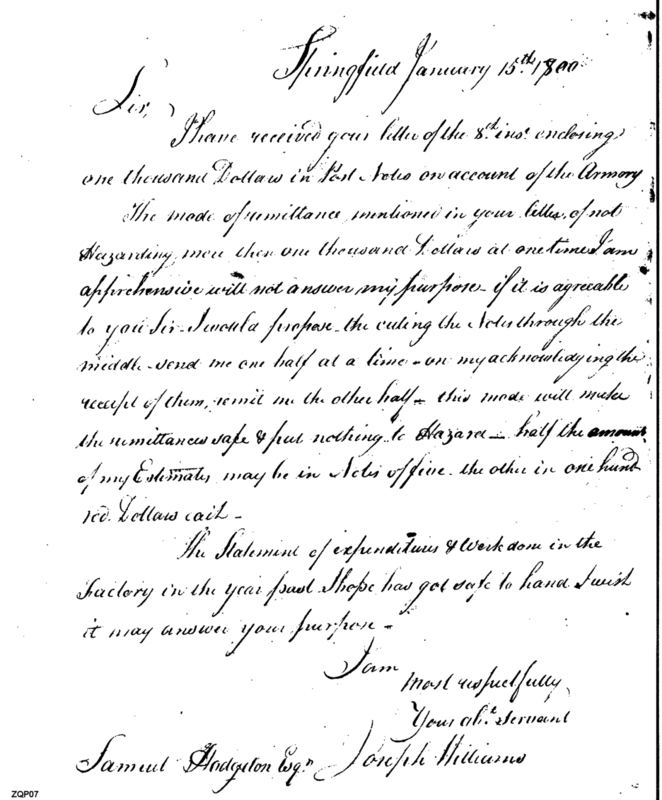 Springfield January 15th. 1800
Sir,
I have received your letter of the 8th. inst. enclosing
one thousand Dollars in Post Notes on account of the Armory
The mode of remittance mentioned in your letter, of not
Hazarding more then one thousand Dollars at one time I am
apprehensive will not answer my purpose - if it is agreeable
to you Sir - I would propose - the cuting the Notes through the
middle - send me one half at a time - on my acknowledging the
receipt of them, remit me the other half - this mode will make
the remittances safe & put nothing to Hazard - half the amount
of my Estimates may be in Notes of five - the other in one hund
red Dollars each -
The Statement of expenditures & Work done in the
Factory in the year past I hope has got safe to hand I wish
it may answer your purpose -
I am
Most respectfully
Your obt. servant
Samuel Hodgdon Esqr. Joseph Williams
ZQP07